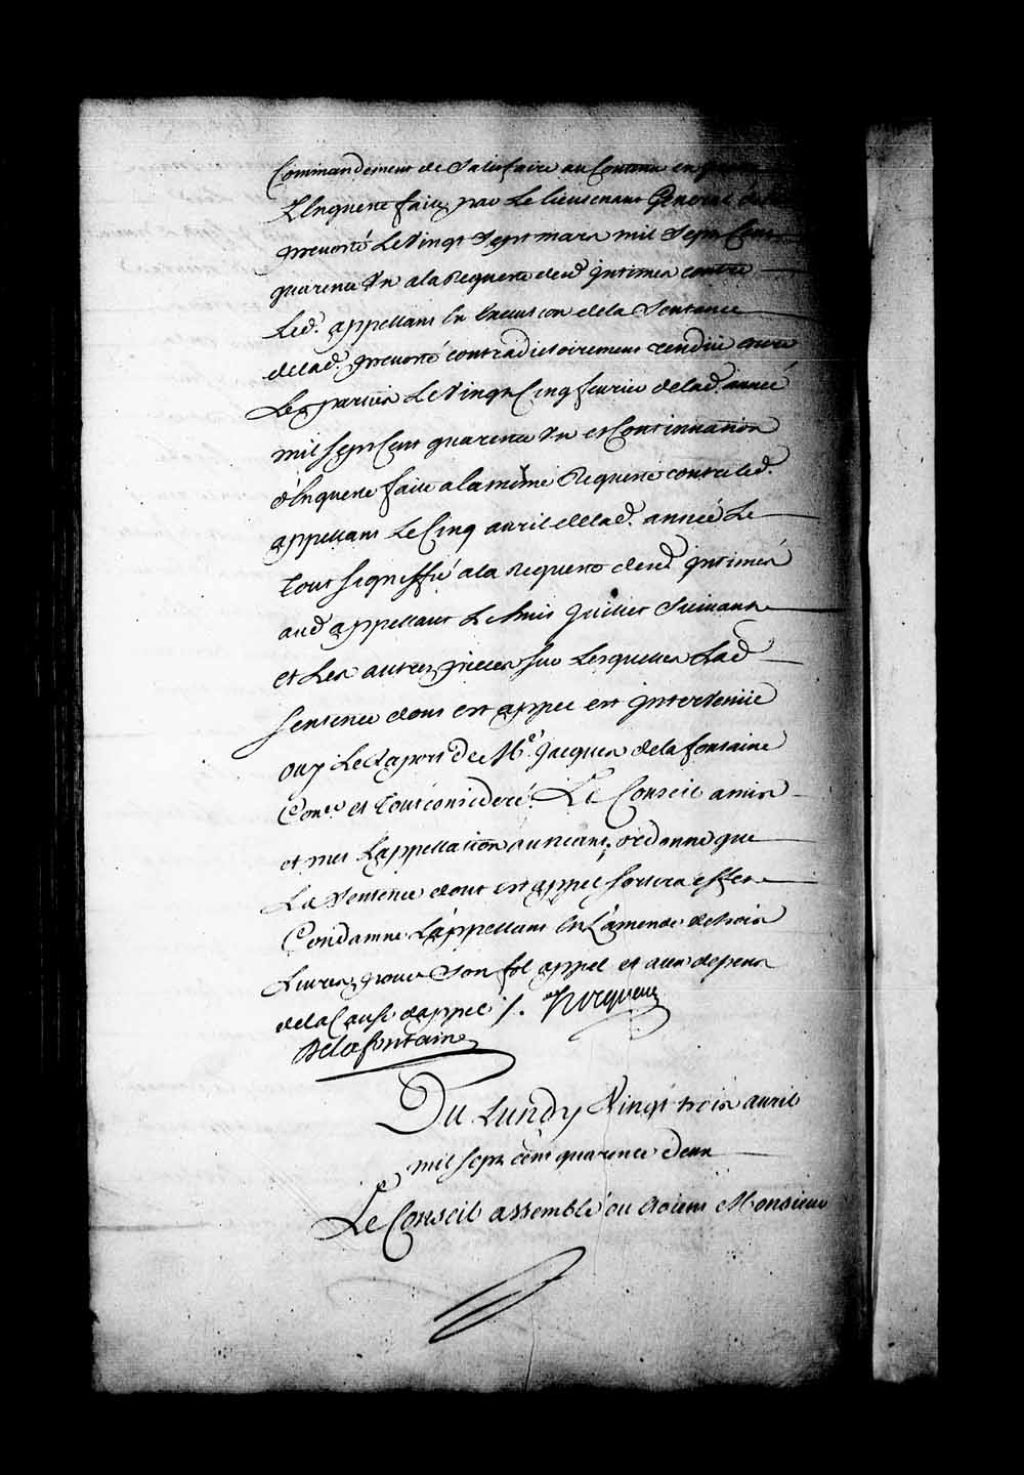 Commandement de Satisfaire au Contenu en
L'Enqueste faite par Le lieutenant General de la
prevosté Le Vingt Sept mars mil Sept Cent
quarente Un a la Requeste desd. Intimés contre
Led. appellant En Execution de la Sentence
de lad. prevosté contradictoirement rendüe entre
Les parties Le Vingt Cinq fevrier de lad. année
mil Sept Cent quarente Un et Continuation
d'Enqueste faite a la même Requeste contre led.
appellant Le Cinq avril de lad. année Le
tout signiffié a la Requeste desd. Intimés
aud. appellant Le huit Juillet Suivant
et Les autres pieces sur Lesquelles Lad.
Sentence dont est appel est Intervenüe
ouy Le Raport de Me. Jacques de la fontaine
Coner. et tout consideré. Le Conseil a mis
et met L'appellation au neant, ordonne que
La Sentence dont est appel sortira effet
Condamne L'appellant En L'amende de trois
Livres pour Son fol appel et aux depens
de la Cause d'appel /. Hocquart
Delafontaine
Du Lundy Vingt trois avril
mil sept cent quarente deux
Le Conseil assemblé ou étoient Monsieur